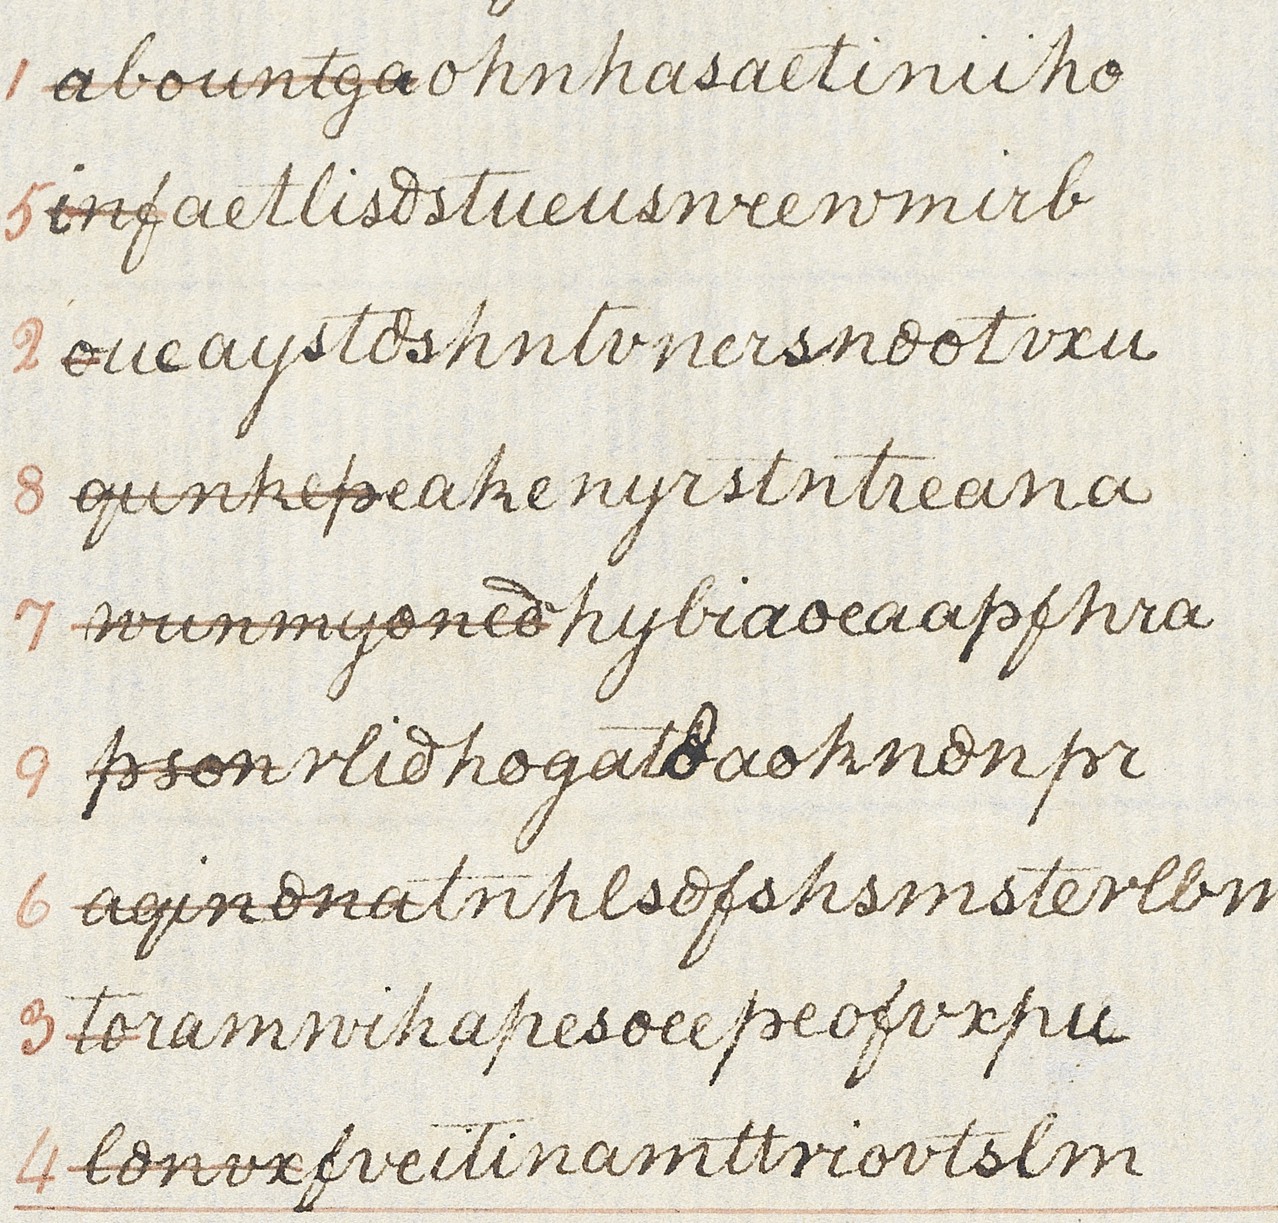 1 abountgaohnhasaetiniiho
5 infaetlisdstueusnreenmirb
2 oueaystdshntvnersndotvxu
8 qunkepeakenyrstntreana
7 wunmyonedhybiaoeaapfhra
9 psonrlidhogatdaokndnpr
6 agindnatnhlsdfshsmstervlbm
3 toramwihapesoeepeofvxpu
4 ldnvxfveitinamttriovtslm